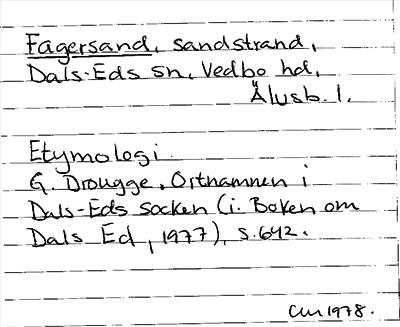 Fagersand, sandstrand,
Dals-Eds sn, Vedbo hd,
Älvsb. l.
Etymologi
G. Drougge, Ortnamnen i
Dals-Eds socken (i: Boken om
Dals Ed, 1977), s. 642.
1978.